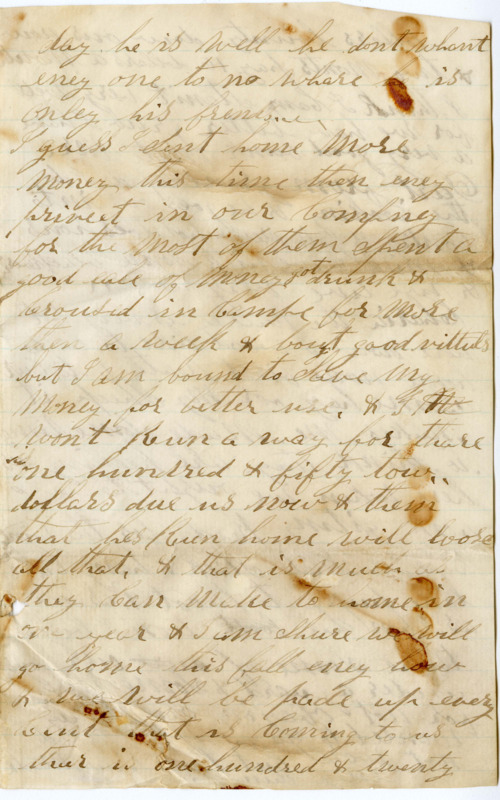 day he is well he dont whant
eney one to no whare is
onley his frend
I guess I sent home More
Money this time then eney
privect in our Compney
for the Most of them spent a
good eale of Money got drunk &
Croused in Campe for More
then a week & bout good vittels
but I am bound to Save My
Money for better use, & I
won't Run a way for thare
one hundred & fifty tow
dollars due us now & them
that hes Run home will loose
all that, & that is much as
they Can Make to home in
one year & I am Shure we will
go home this fall eney how
& we will be pade up every
Cent that is Coming to us
ther is one hundred & twenty